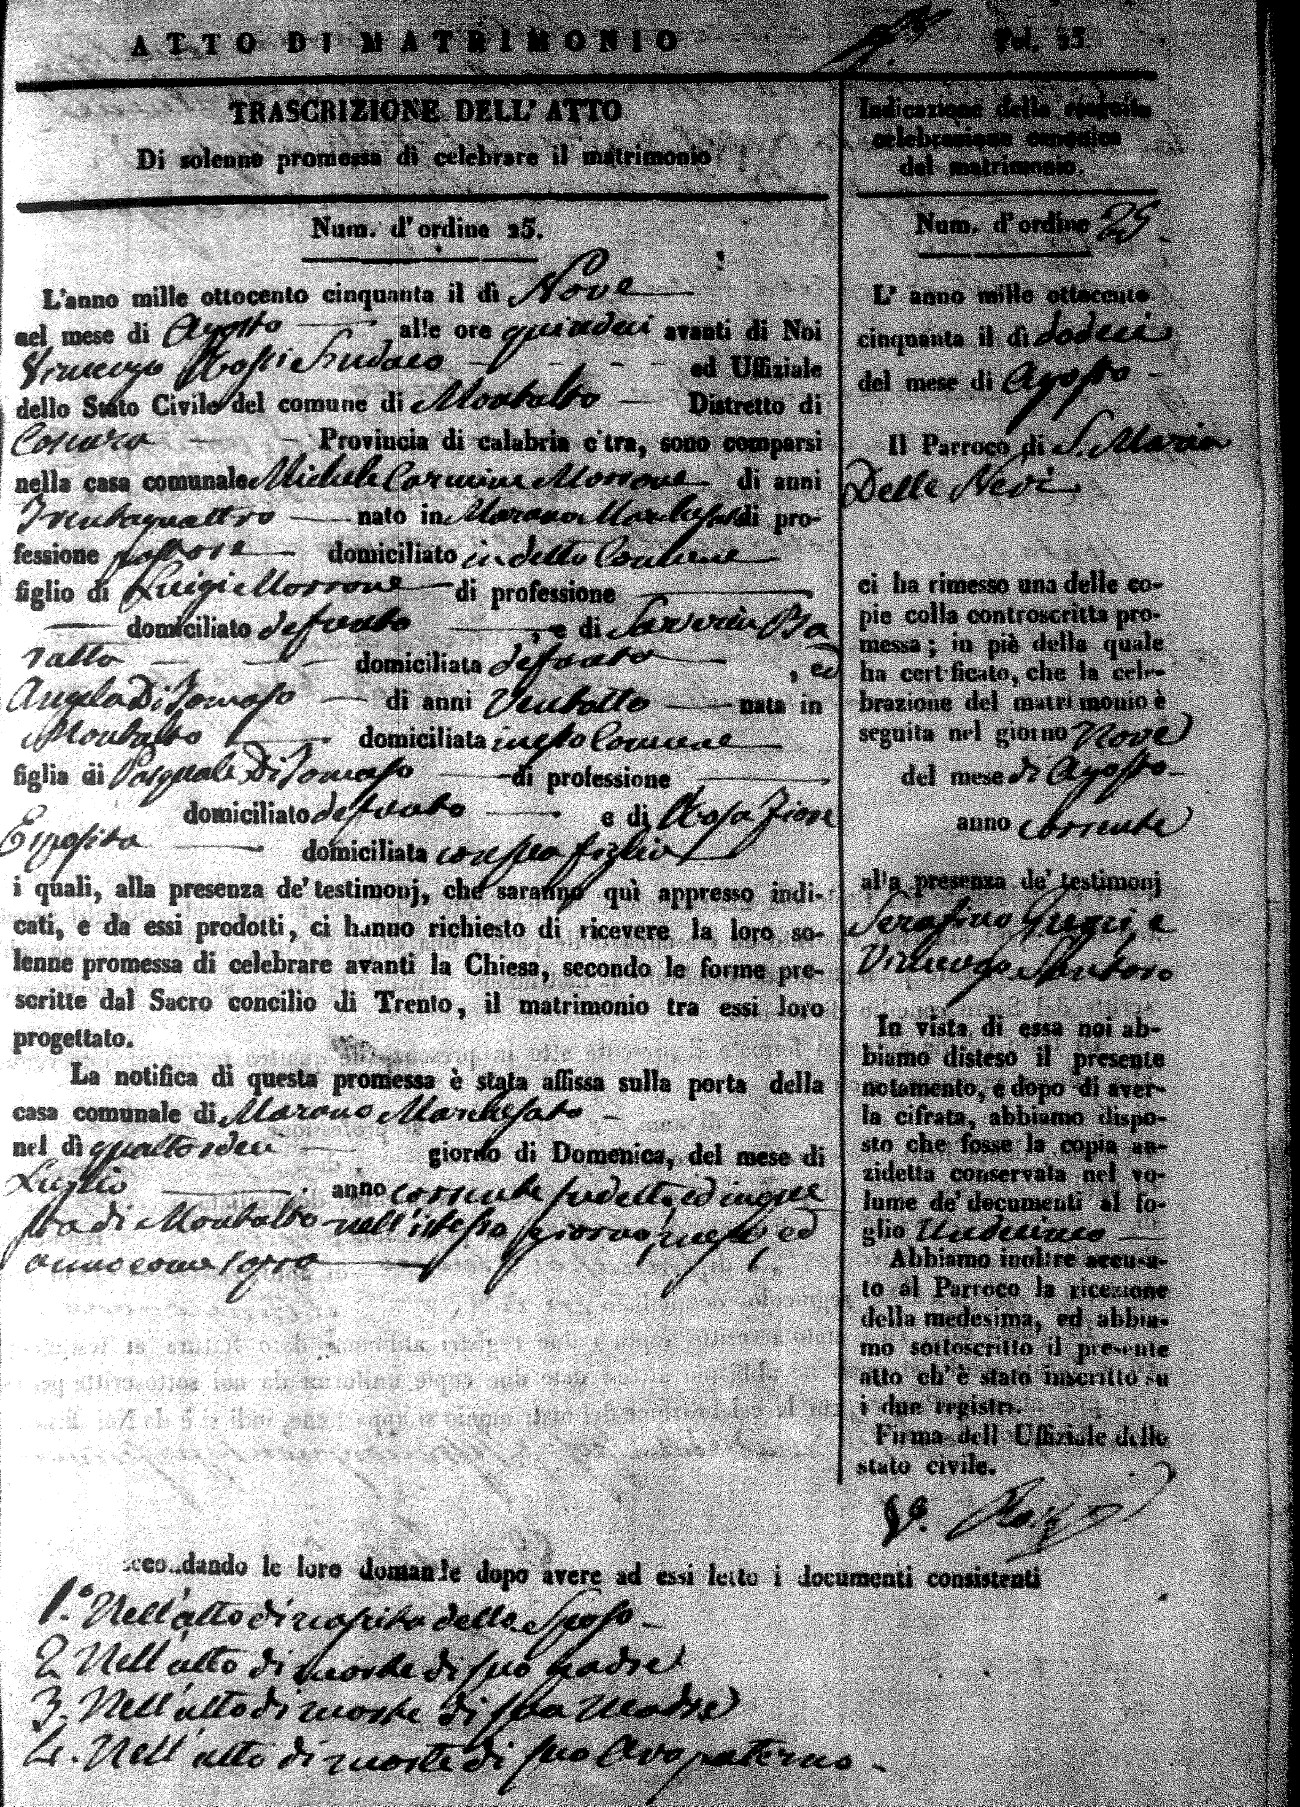 ATTO DI MATRIMONIO
Fol. 25.
TRASCRIZIONE DELL' ATTO
Di solenne promessa di celebrare il matrimonio
Num. d'ordine 25.
L'anno mille ottocento cinquanta il dì Nove
nel mese di Agosto alle ore quindeci avanti di Noi
Vincenzo Rossi Sindaco ed Uffiziale
dello Stato Civile del comune di Montalto Distretto di
Cosenza Provincia di calabria citra, sono comparsi
nella casa comunale Michele Carmine Morrone di anni
Trentaquattro nato in Marano Marchesato di pro-
fessione domiciliato in detto Comune
figlio di Luigi Morrone di professione
domiciliato defonto , e di Saveria
domiciliata defonta , ed
Angela Di Tomaso di anni Ventotto nata in
Montalto domiciliata in esso Comune
figlia di Pasquale Di Tomaso di professione
domiciliato defonto e di Rosa
Esposito domiciliata con essa figlia
i quali, alla presenza de' testimonj, che saranno quì appresso indi-
cati, e da essi prodotti, ci hanno richiesto di ricevere la loro so-
lenne promessa di celebrare avanti la Chiesa, secondo le forme pre-
scritte dal Sacro concilio di Trento, il matrimonio tra essi loro
progettato.
La notifica di questa promessa è stata affissa sulla porta della
casa comunale di Marano Marchesato
nel dì quattordeci giorno di Domenica, del mese di
Luglio anno corrente sudetto, ed in que
sta di Montalto nell'istesso giorno, mese, ed
anno come sopra
Indicazione della seguita
celebrazione canonica
del matrimonio.
Num. d'ordine 25.
L' anno mille ottocento
cinquanta il dì dodeci
del mese di Agosto
Il Parroco di S. Maria
Delle Nevi
ci ha rimesso una delle co-
pie colla controscritta pro-
messa; in piè della quale
ha certificato, che la cele-
brazione del matrimonio è
seguita nel giorno Nove
del mese di Agosto
anno corrente
alla presenza de' testimonj
Serafino e
Vincenzo Santoro
In vista di essa noi ab-
biamo disteso il presente
notamento, e dopo di aver-
la cifrata, abbiamo dispo-
sto che fosse la copia an-
zidetta conservata nel vo-
lume de' documenti al fo-
glio
Abbiamo inoltre accusa-
to al Parroco la ricezione
della medesima, ed abbia-
mo sottoscritto il presente
atto ch'è stato inscritto su
i due registri.
Firma dell Uffiziale dello
stato civile.
Va. Rossi
secondando le loro domande dopo avere ad essi letto i documenti consistenti
1.° Nell'atto di nascita dello Sposo
2. Nell'atto di morte di suo padre
3. Nell'atto di morte di sua Madre
4. Nell'atto di morte di suo Avo paterno